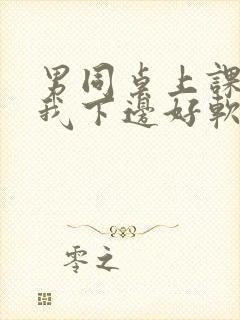 男同桌上課
我下邊好軟
零之